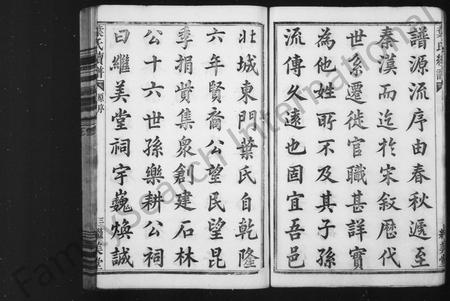 譜源流序由春秋遞至
秦漢而迄於宋叙歷代
世系遷徙官職甚詳寔
為他姓所不及其子孫
流傳久遠也固宜吾邑
北城東門葉氏自乾隆
六年賢裔公望民望昆
季捐貲集衆創建石林
公十六世孫樂耕公祠
曰繼美堂祠宇巍煥誠
葉氏續譜
原序
FamilySearch International